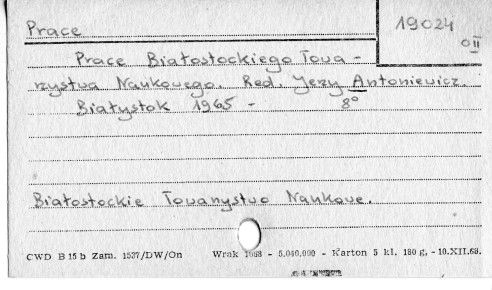 Prace
19024
0II
Prace Białostockiego Towa-
rzystwa Naukowego. Red. Jerzy Antoniewicz.
Białystok 1965 - 8°
Białostockie Towarzystwo Naukowe.
CWD B 15 b Zam. 1537/DW/On Wrak 1968 - 5.040,000 - Karton 5 kl. 180 g, - 10.XII.68.